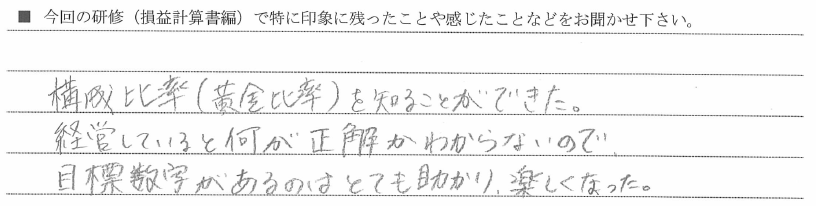 ■ 今回の研修（損益計算書編）で特に印象に残ったことや感じたことなどをお聞かせ下さい。
構成比率(黄金比率)を知ることができた。
経営していると何が正解かわからないので、
目標数字があるのはとても助かり、楽しくなった。